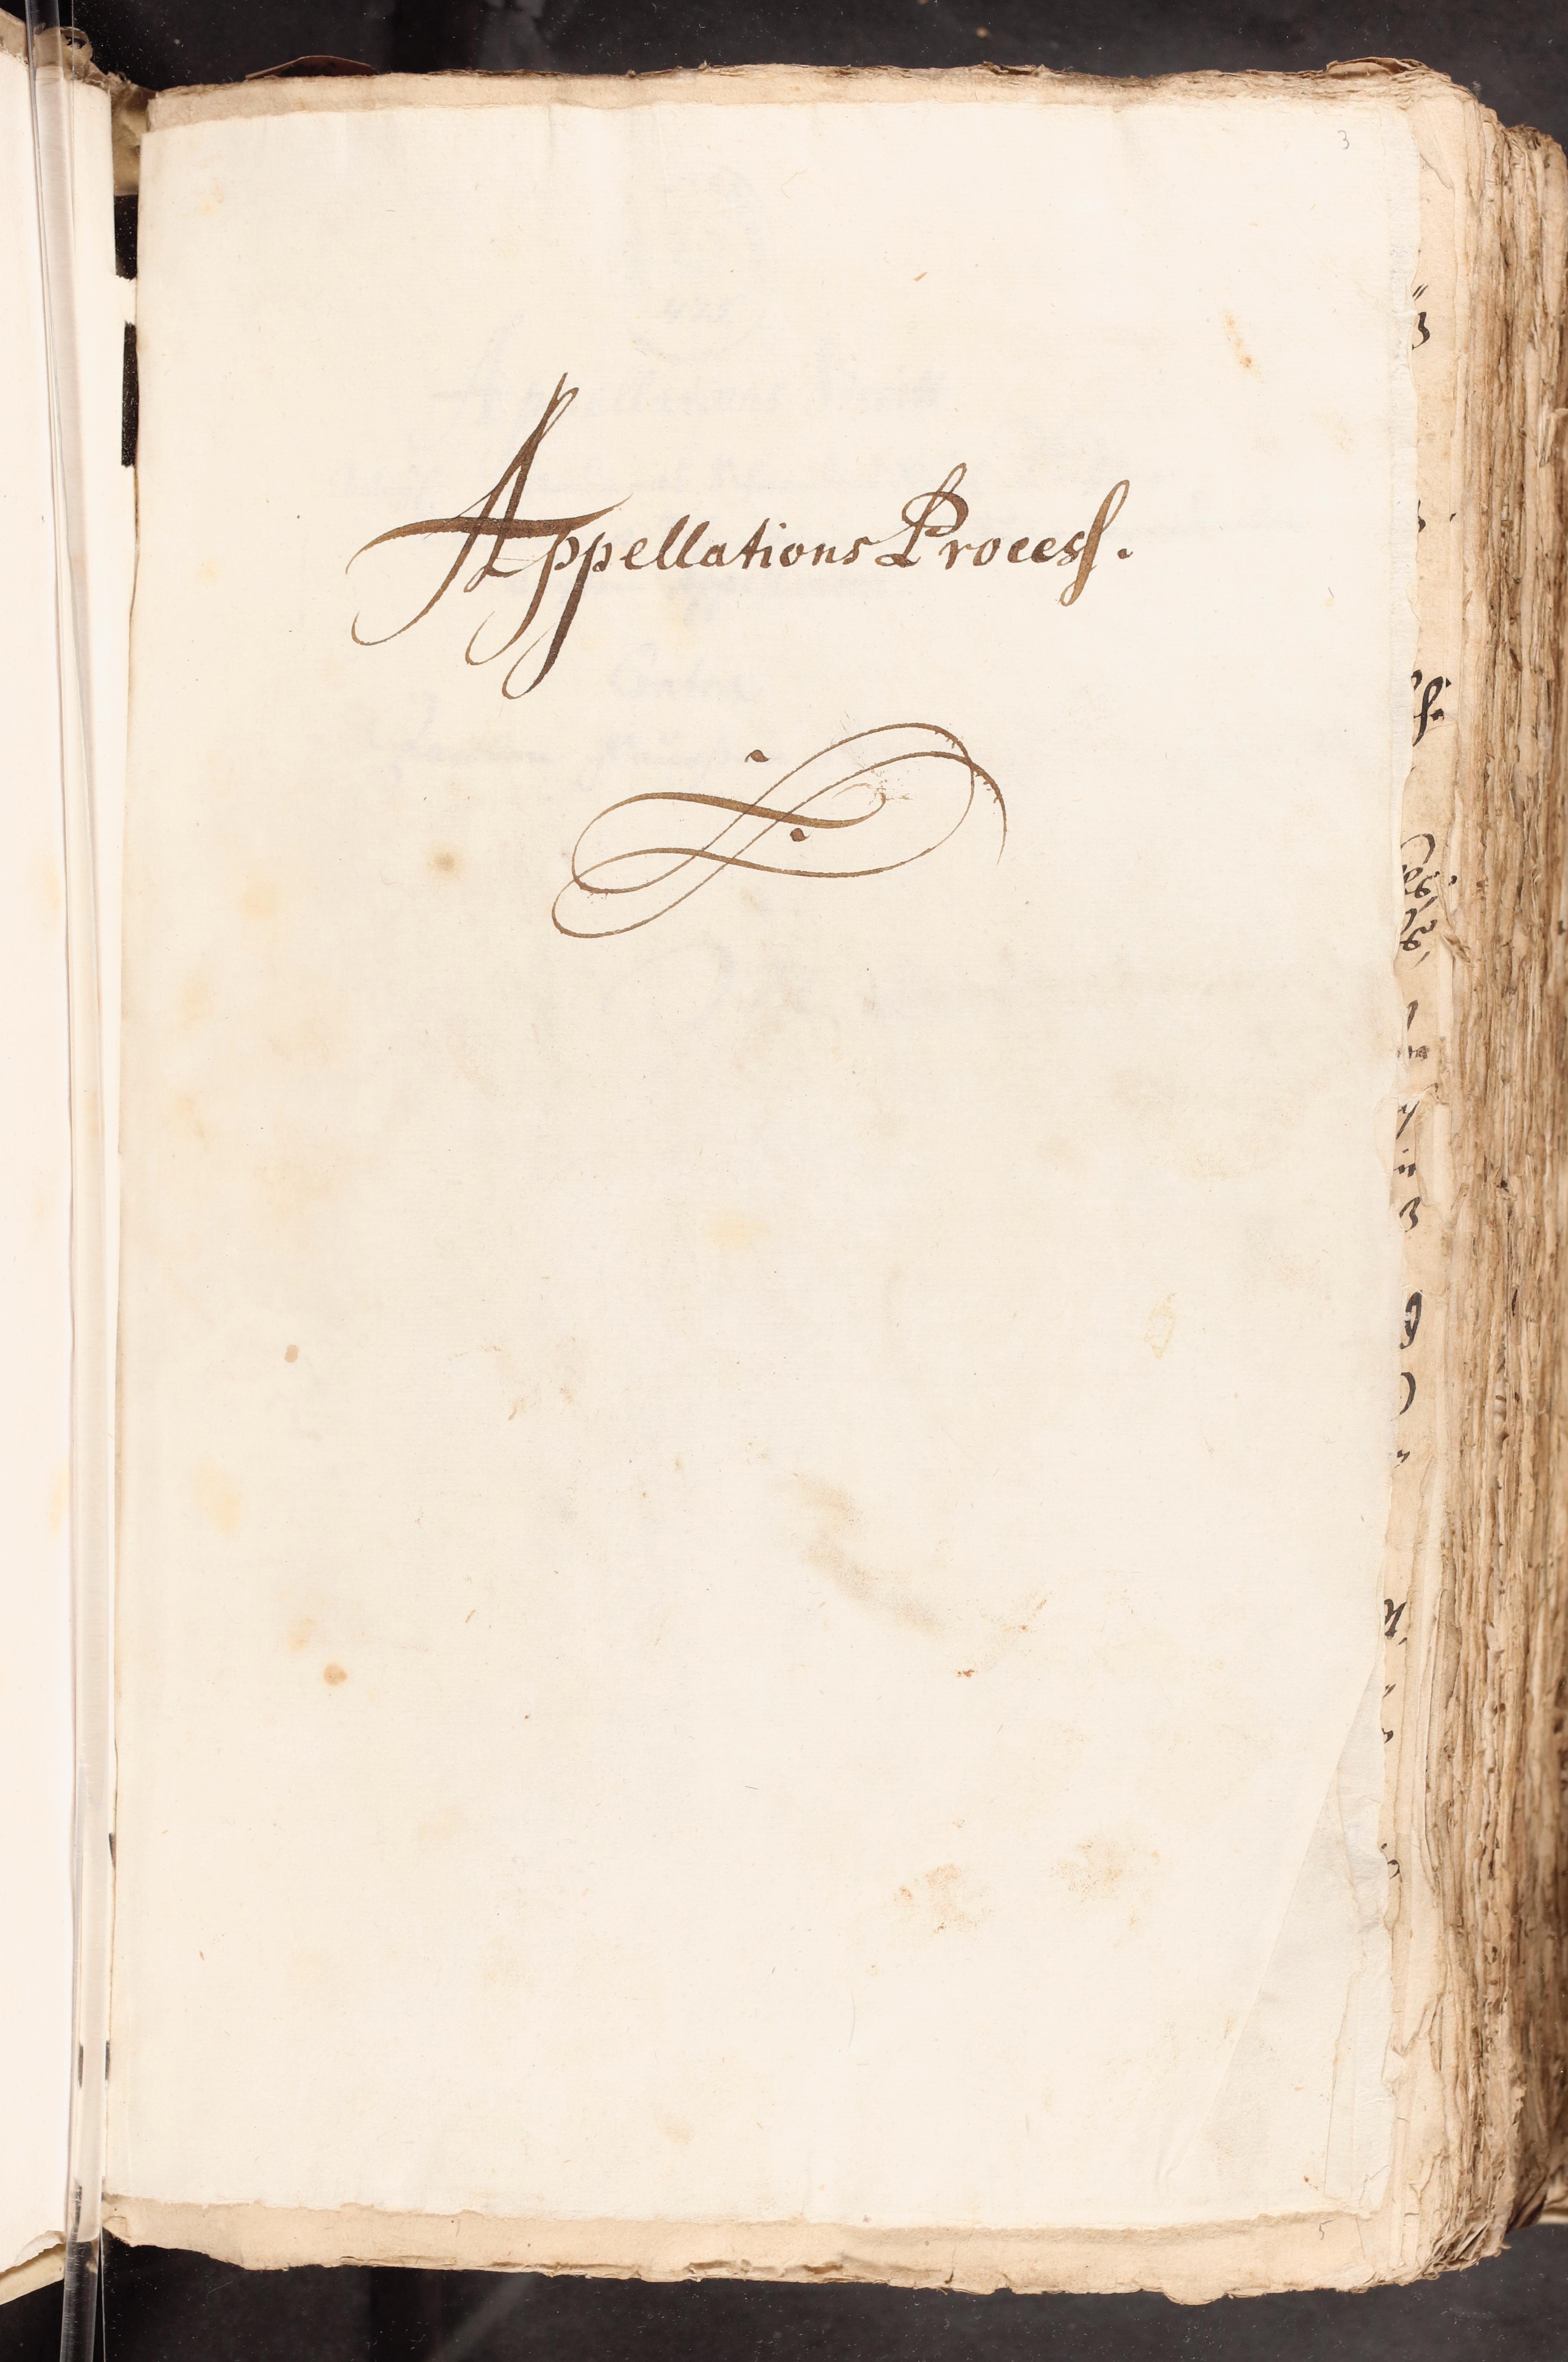 3
Appellations Process.